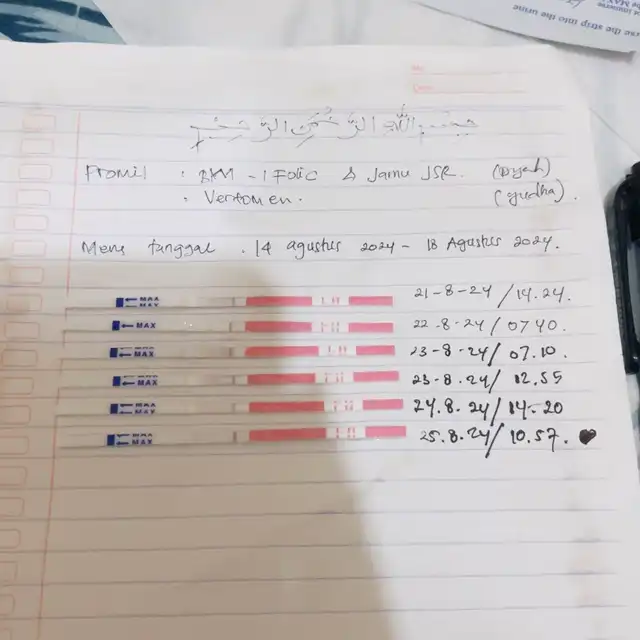 se the strip into the urine
the MAX
No :
Date :
بسم الله الرحمن الرحيم
Promil : BKM - 1 Folic & Jamu JSR. (Dyah)
: Vertomen. (yudha).
Mens tanggal . 14 agustus 2024 - 18 Agustus 2024.
MAX MAX LH 21-8-24 / 14.24.
MAX LH 22.8-24 / 07 40.
MAX MAX LH 23-8-24 / 07.10.
MAX MAX LH 23-8.24 / 12.55
MAX MAX LH 24.8.24 / 14-20
MAX MAX LH 25.8.24 / 10.57.